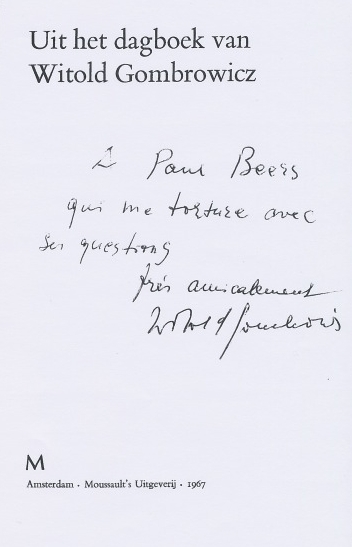 Uit het dagboek van
Witold Gombrowicz
à Paul Beers
qui me torture avec
ses questions
très amicalement
Witold Gombrowicz
M
Amsterdam · Moussault's Uitgeverij · 1967